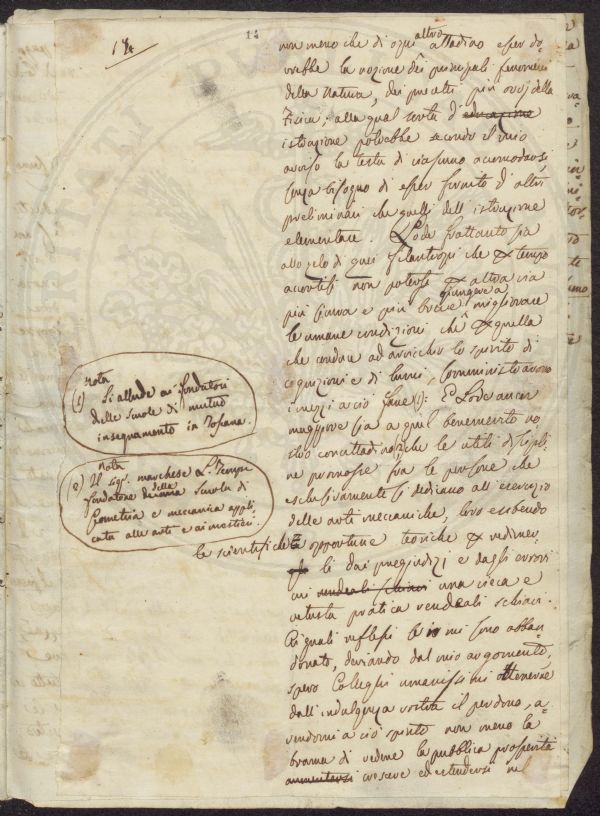 14
14
non meno che di ogni altro cittadino esser do-
vrebbe la nozione dei principali fenomeni
della Natura, dei precetti più ovvj della
Fisica; alla qual sorta d' educazione
istruzione potrebbe secondo il mio
avviso la testa di ciascuno accomodarsi
senza bisogno di esser fornito d'altri
preliminari che quelli dell'istruzione
elementare. Lode frattanto sia
allo zelo di quei filantropi che
accortisi non potersi altra via
più sicura e più breve giungere a migliorare
le umane condizioni che quella
che conduce ad arricchir lo spirito di
cognizioni e di lumi, somministravono
i mezzi a ciò fare (1): E Lode ancor
maggiore sia a quel benemerito no-
stro concittadino che le utili discipli-
ne promosse fra le persone che
esclusivamente si dedicano all'esercizio
delle arti meccaniche, loro esibendo
le scientifiche opportune teoriche
li dai pregiudizj e dagli errori
cui rendeali schiavi una cieca e
vetusta pratica rendeali schiavi.
Ai quali riflessi se mi sono abban-
donato, deviando dal mio argomento,
spero Colleghi umanissimi ottenerne
dall'indulgenza vostra il perdono, a-
vendomi a ciò spinto non meno la
brama di vedere la pubblica prosperità
aumentarsi crescere ed estendersi nel
nota
(1) Si allude ai fondatori
delle scuole di mutuo
insegnamento in Toscana.
nota
(2) Il sig. marchese L. Tempi
fondatore della scuola di
Geometria e meccanica appli-
cata alle arti e ai mestieri.